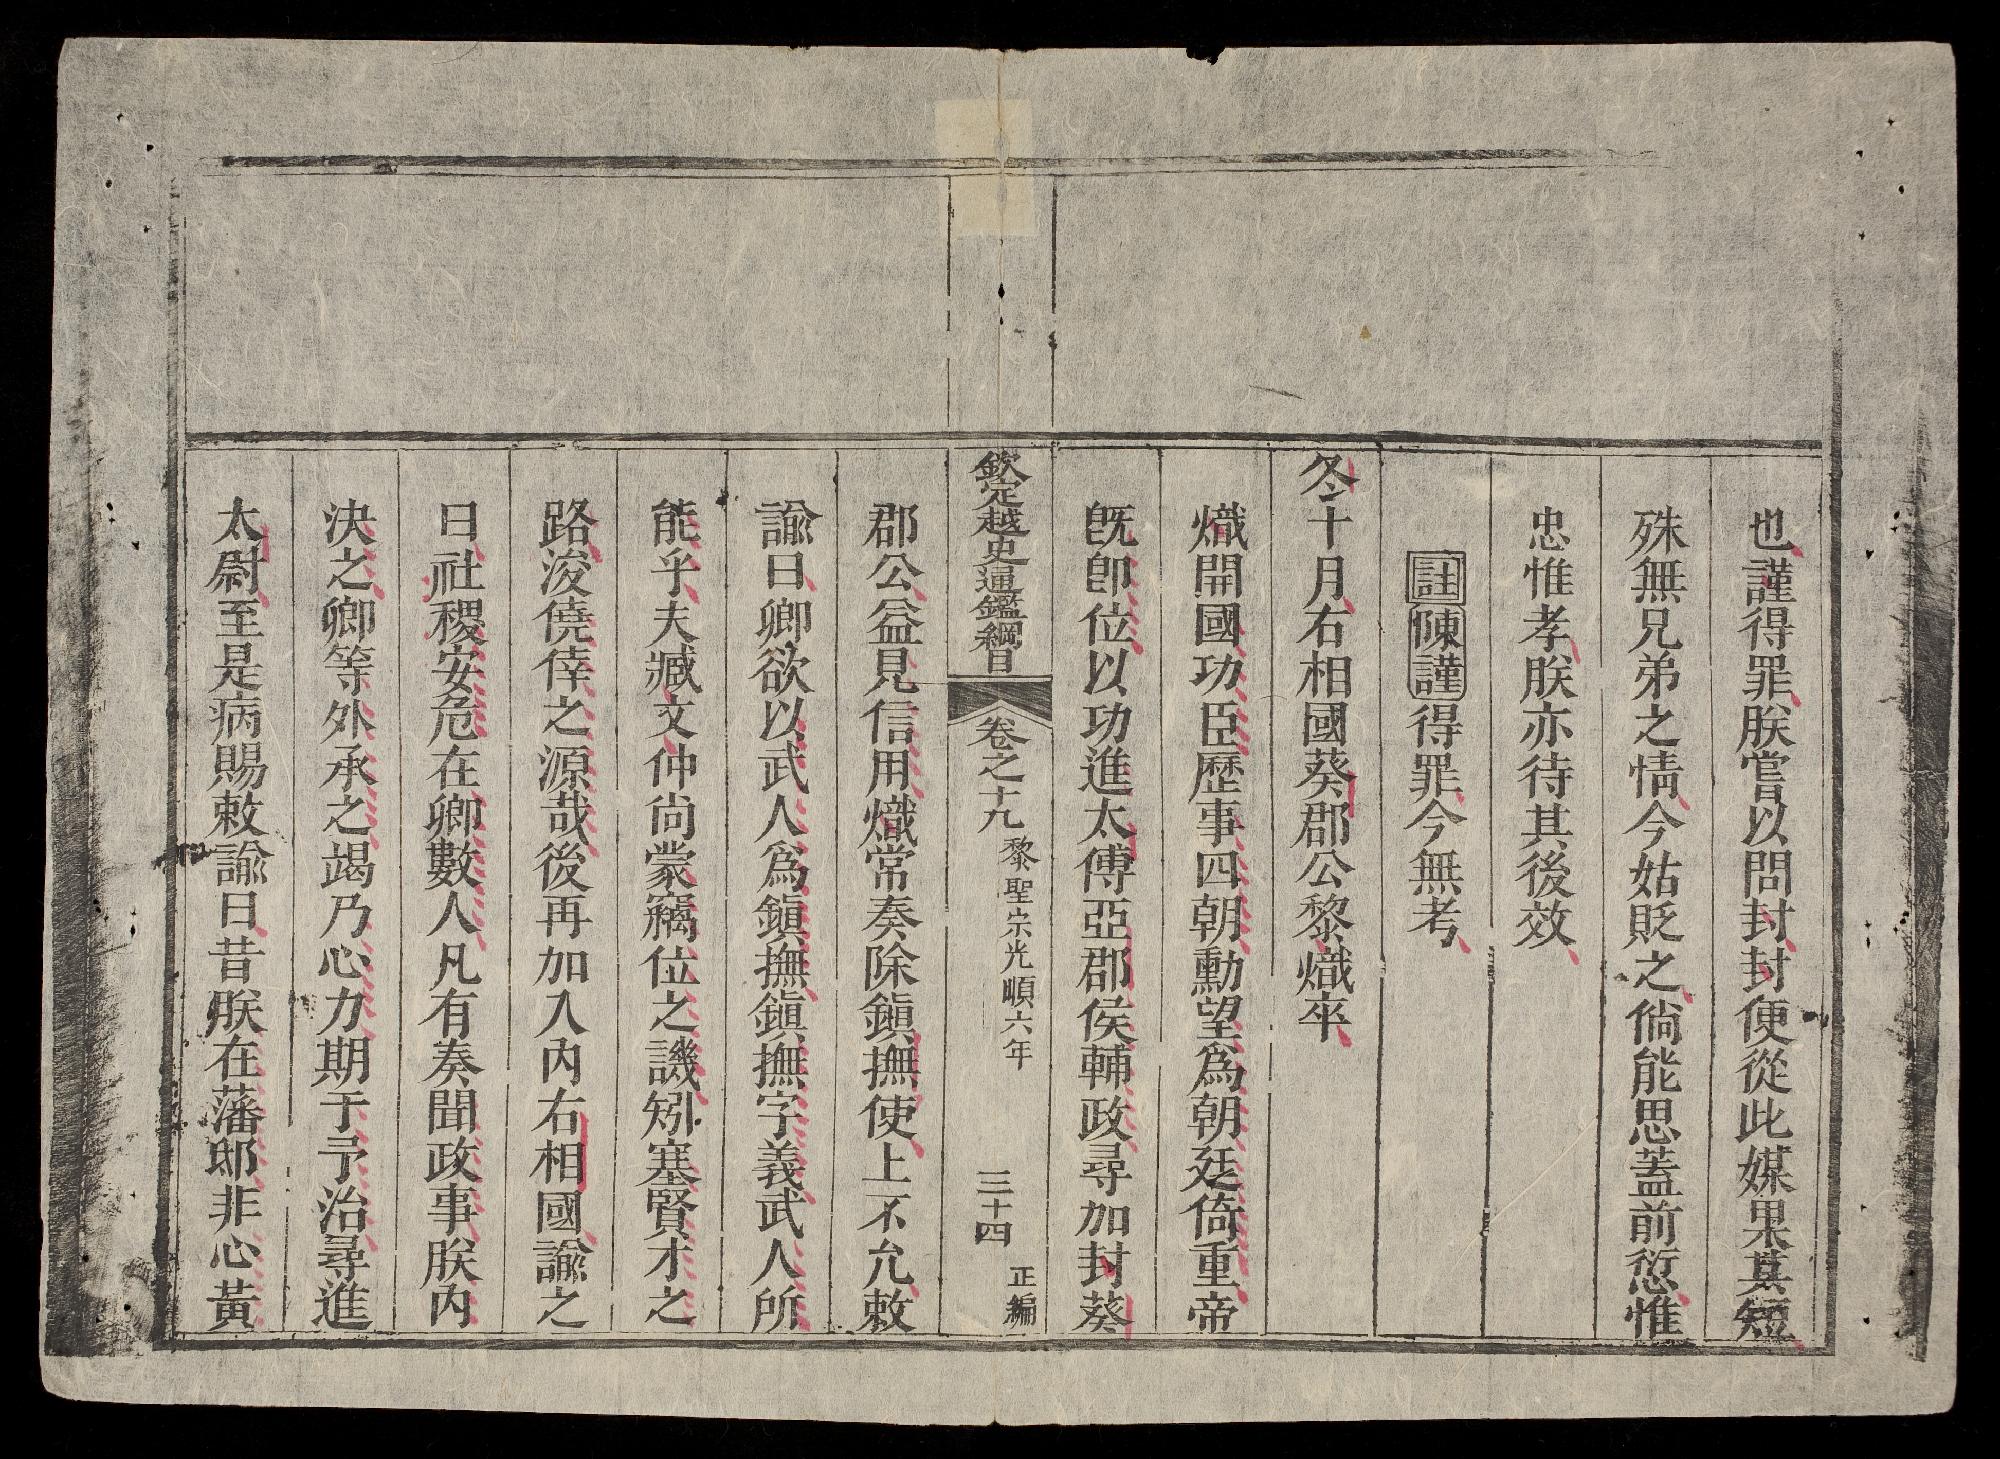 也謹得罪朕嘗以問封封便從此媒果其短
殊無兄弟之情今姑貶之倘能思蓋前愆惟
忠惟孝朕亦待其後效
註陳謹得罪今無考
冬十月右相國葵郡公黎熾卒
熾開國功臣歷事四朝勳望爲朝廷倚重帝
旣卽位以功進太傅亞郡侯輔政尋加封葵
欽定越史通鑑綱目
卷之十九
黎聖宗光順六年
三十四
正編
郡公益見信用熾常奏除鎭撫使上不允敕
諭曰卿欲以武人爲鎭撫鎭撫字義武人所
能乎夫臧文仲尚蒙竊位之譏矧塞賢才之
路浚僥倖之源哉後再加入內右相國諭之
曰社稷安危在卿數人凡有奏聞政事朕內
決之卿等外承之竭乃心力期于予治尋進
太尉至是病賜敕諭曰昔朕在藩邸非心黃